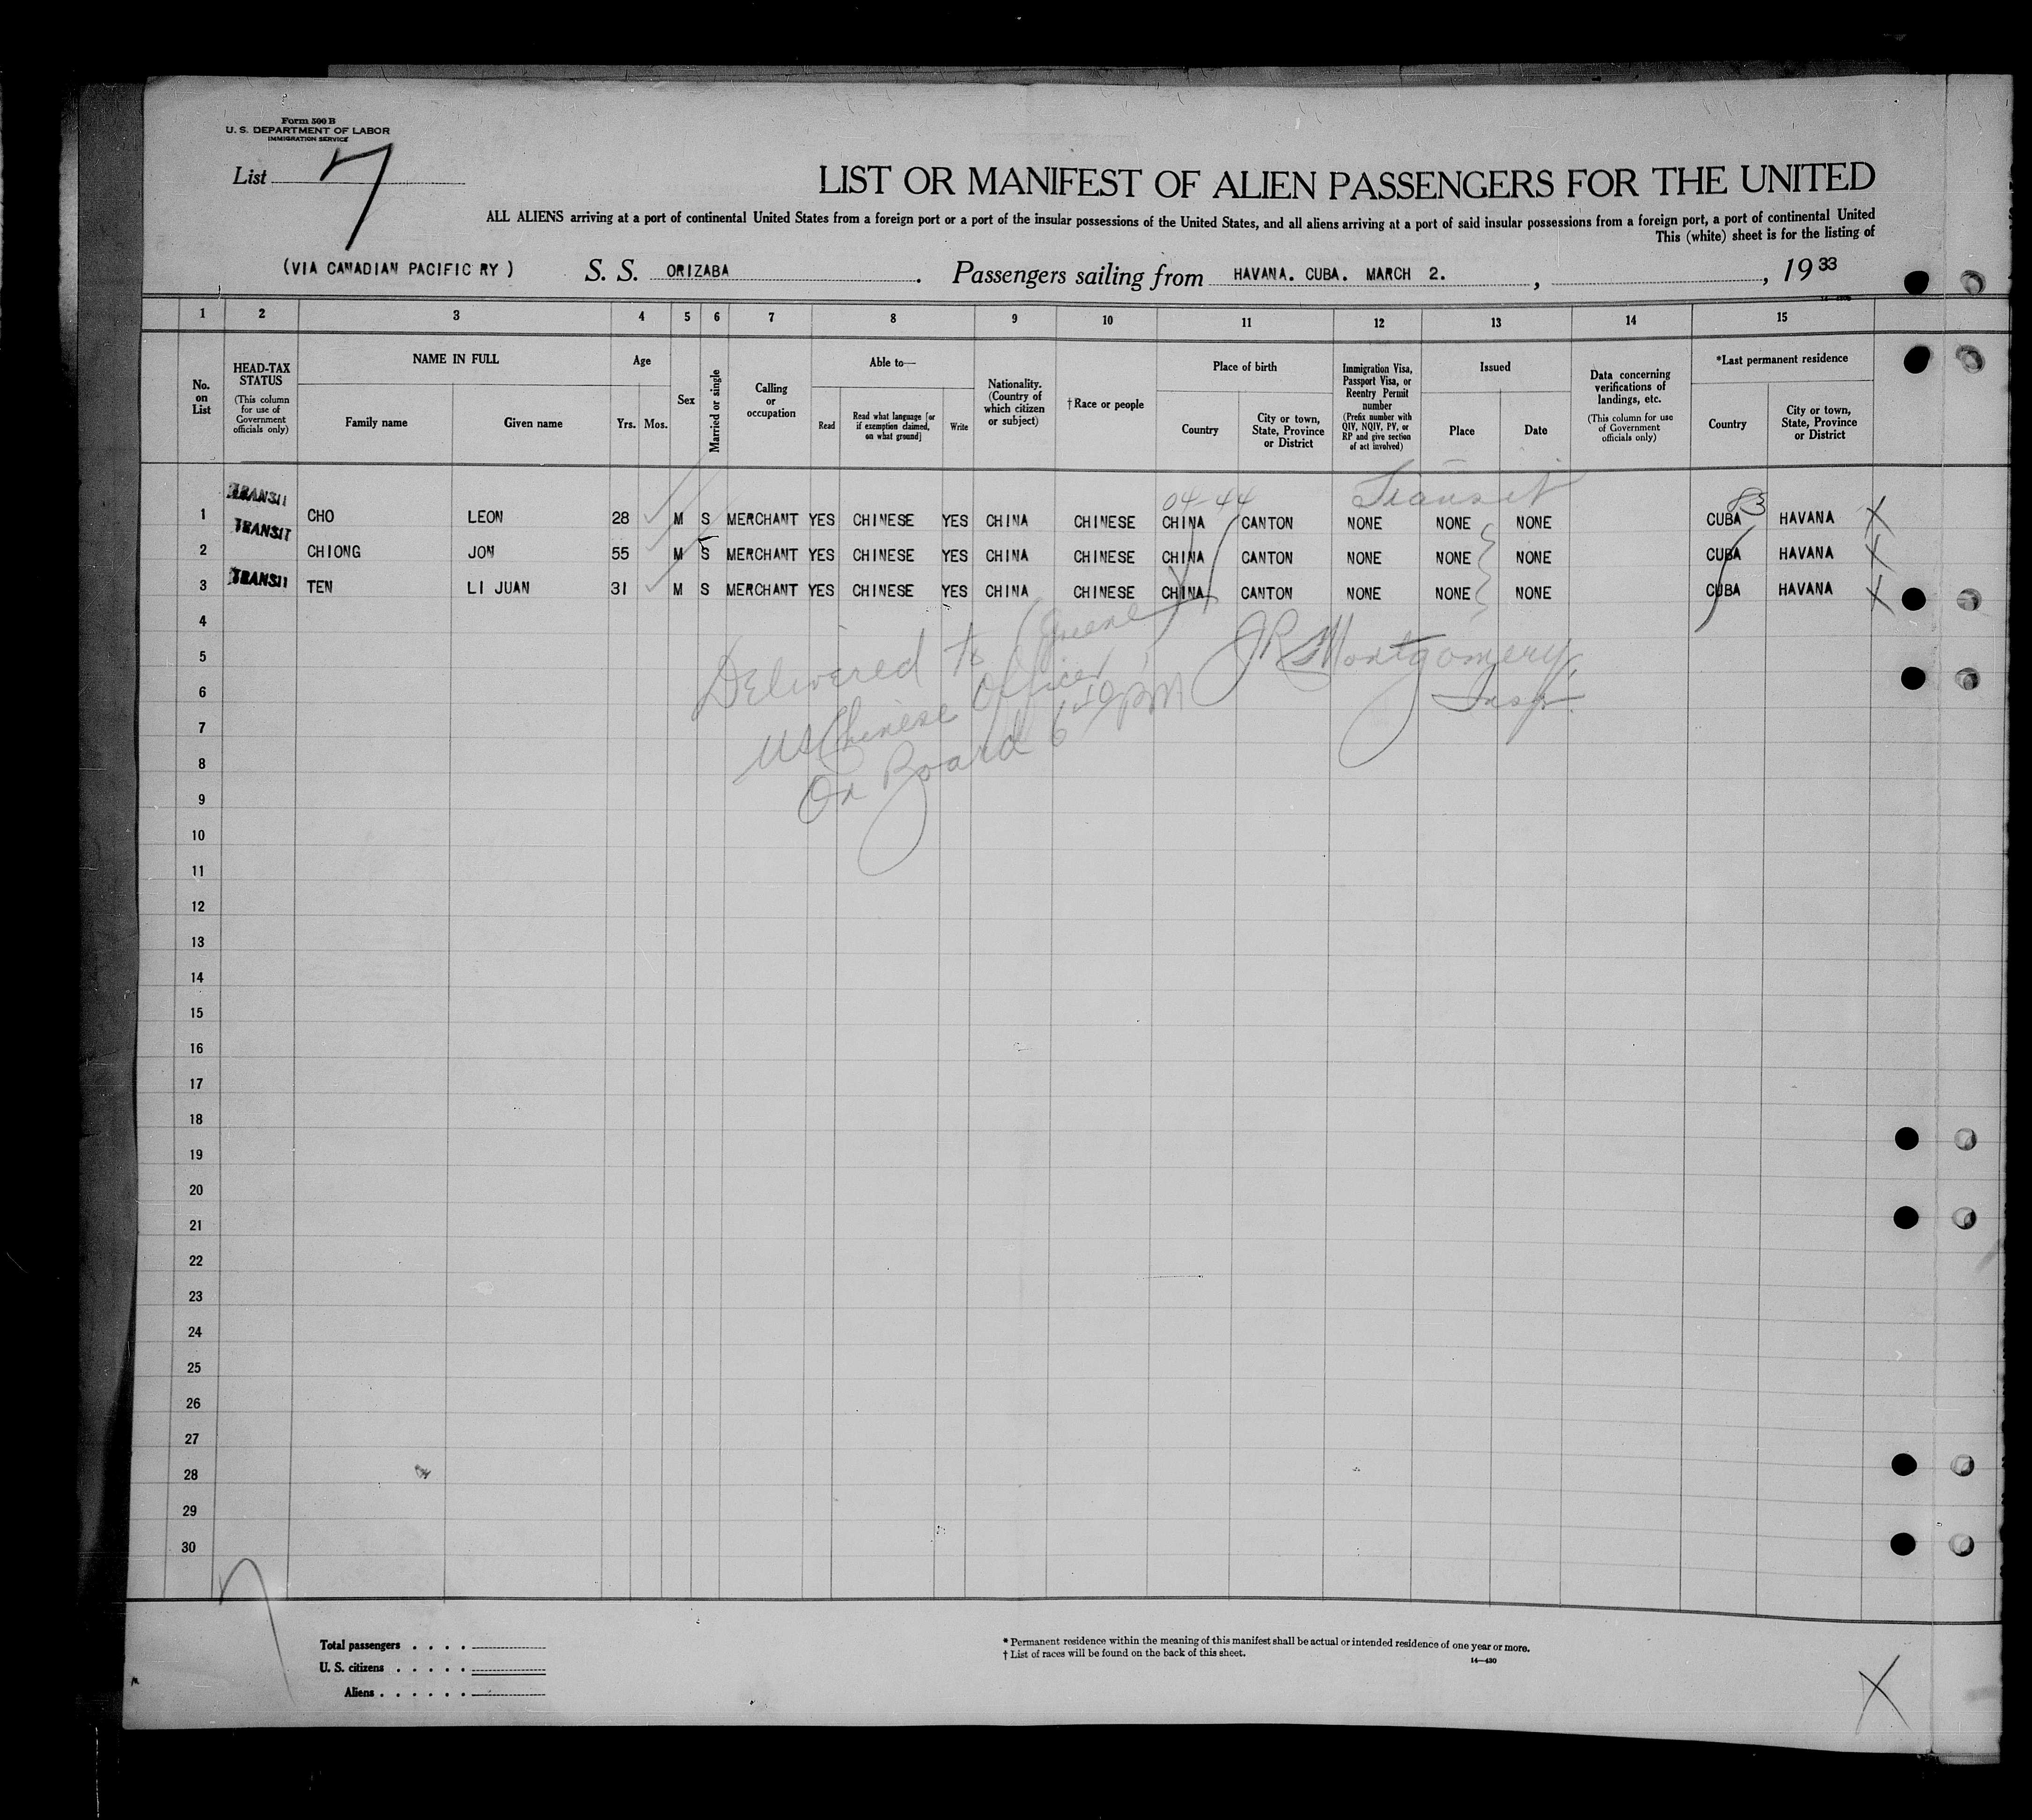 Form 500 B
U. S. DEPARTMENT OF LABOR
IMMIGRATION SERVICE
List 7
LIST OR MANIFEST OF ALIEN PASSENGERS FOR THE UNITED
ALL ALIENS arriving at a port of continental United States from a foreign port or a port of the insular possessions of the United States, and all aliens arriving at a port of said insular possessions from a foreign port, a port of continental United
This (white) sheet is for the listing of
(VIA CANADIAN PACIFIC RY ) S. S. ORIZABA. Passengers sailing from HAVANA. CUBA. MARCH 2. , , 1933
1 2 3 4 5 6 7 8 9 10 11 12 13 14 15
No. on List
HEAD-TAX STATUS
(This column for use of Government officials only)
NAME IN FULL
Family name
Given name
Age
Yrs. Mos.
Sex
Married or single
Calling or occupation
Able to—
Read
Read what language [or if exemption claimed, on what ground]
Write
Nationality. (Country of which citizen or subject)
† Race or people
Place of birth
Country
City or town, State, Province or District
Immigration Visa, Passport Visa, or Reentry Permit number
(Prefix number with QIV, NQIV, PV, or RP and give section of act involved)
Issued
Place
Date
Data concerning verifications of landings, etc.
(This column for use of Government officials only)
*Last permanent residence
Country
City or town, State, Province or District
04-44 Transit
1 TRANSIT CHO LEON 28 M S MERCHANT YES CHINESE YES CHINA CHINESE CHINA CANTON NONE NONE NONE CUBA HAVANA X
2 TRANSIT CHIONG JON 55 M S MERCHANT YES CHINESE YES CHINA CHINESE CHINA CANTON NONE NONE NONE CUBA HAVANA X
3 TRANSIT TEN LI JUAN 31 M S MERCHANT YES CHINESE YES CHINA CHINESE CHINA CANTON NONE NONE NONE CUBA HAVANA X
4
5
6
7
8
9
10
11
12
13
14
15
16
17
18
19
20
21
22
23
24
25
26
27
28
29
30
Delivered to (Greene)
US Chinese Officer
On Board 6 50 PM
JR Montgomery
Insp.
Total passengers . . . .
U. S. citizens . . . . .
Aliens . . . . . .
* Permanent residence within the meaning of this manifest shall be actual or intended residence of one year or more.
† List of races will be found on the back of this sheet.
14—430
X